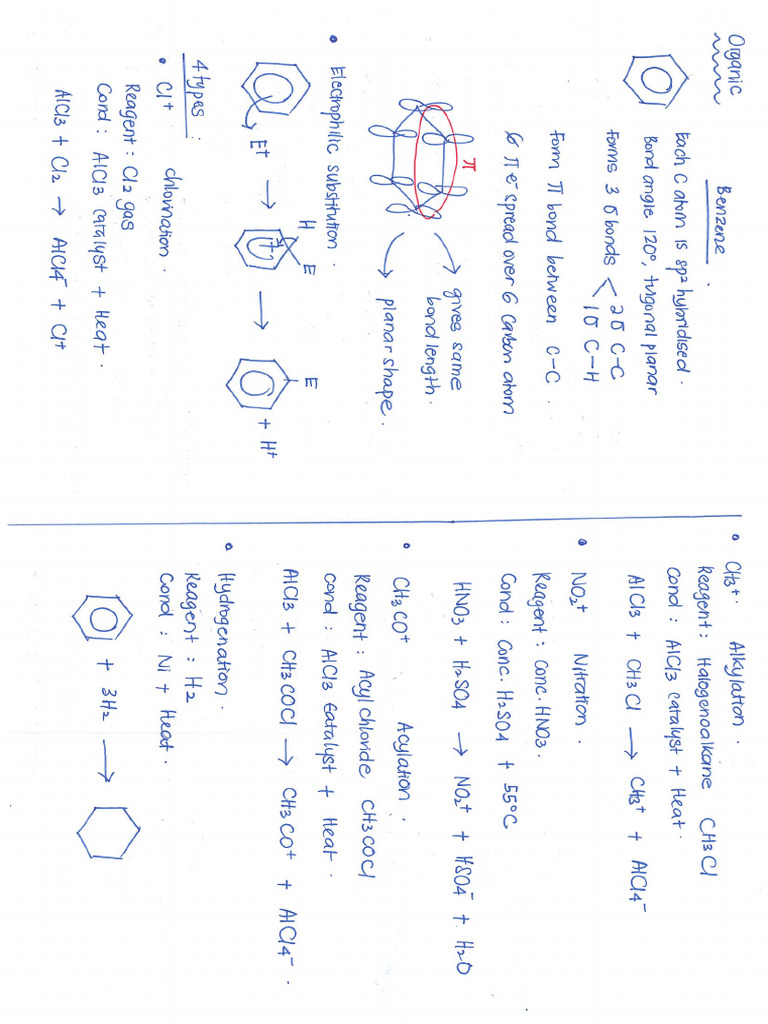 Organic
Benzene
Each C atom is sp² hybridised.
Bond angle 120°, trigonal planar
forms 3 σ bonds < 2σ C-C
1σ C-H
form π bond between C-C.
6 π e⁻ spread over 6 Carbon atom
π
gives same
bond length.
planar shape.
• Electrophilic substitution.
E⁺ → H E + → E + H⁺
4 types:
• Cl⁺ chlorination.
Reagent: Cl2 gas
Cond: AlCl3 catalyst + Heat.
AlCl3 + Cl2 → AlCl4⁻ + Cl⁺
• CH3⁺. Alkylation.
Reagent: Halogenoalkane CH3Cl
Cond: AlCl3 catalyst + Heat.
AlCl3 + CH3Cl → CH3⁺ + AlCl4⁻
• NO2⁺ Nitration.
Reagent: Conc. HNO3.
Cond: Conc. H2SO4 + 55°C
HNO3 + H2SO4 → NO2⁺ + HSO4⁻ + H2O
• CH3CO⁺. Acylation.
Reagent: Acyl chloride CH3COCl
Cond: AlCl3 catalyst + Heat.
AlCl3 + CH3COCl → CH3CO⁺ + AlCl4⁻.
• Hydrogenation.
Reagent: H2
Cond: Ni + Heat.
+ 3H2 →